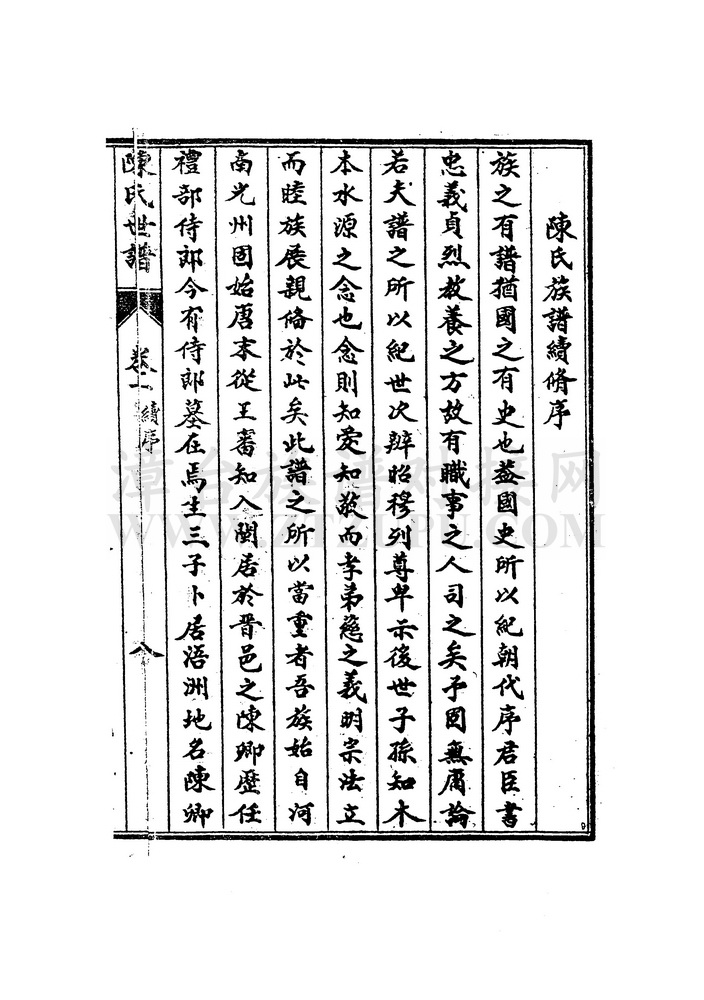 陳氏族譜續脩序
族之有譜猶國之有史也蓋國史所以紀朝代序君臣書
忠義貞烈教養之方故有職事之人司之矣予固無庸論
若夫譜之所以紀世次辨昭穆列尊卑示後世子孫知木
本水源之念也念則知愛知敬而孝弟慈之義明宗法立
而睦族展親脩於此矣此譜之所以當重者吾族始自河
南光州固始唐末從王審知入閩居於晋邑之陳卿歷任
禮部侍郎今有侍郎墓在焉生三子卜居浯洲地名陳卿
陳氏世譜 卷一 續序 八
漳台族谱对接网
WWW.ZTZUPU.COM